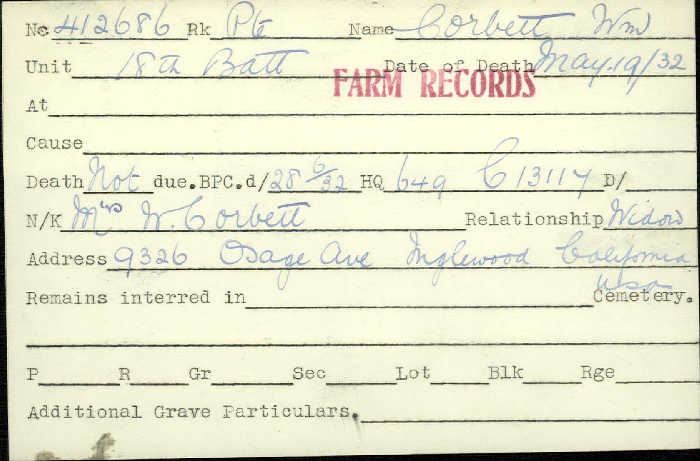 No 412686 Rk Pte Name Corbett Wm
Unit 18th Batt Date of Death May.19/32
FARM RECORDS
At
Cause
Death Not due.BPC.d/ 28 6/32 HQ 649 C 13117 D/
N/K Mrs W. Corbett Relationship Widow
Address 9326 Osage Ave Inglewood California
USA
Remains interred in Cemetery.
P R Gr Sec Lot Blk Rge
Additional Grave Particulars.